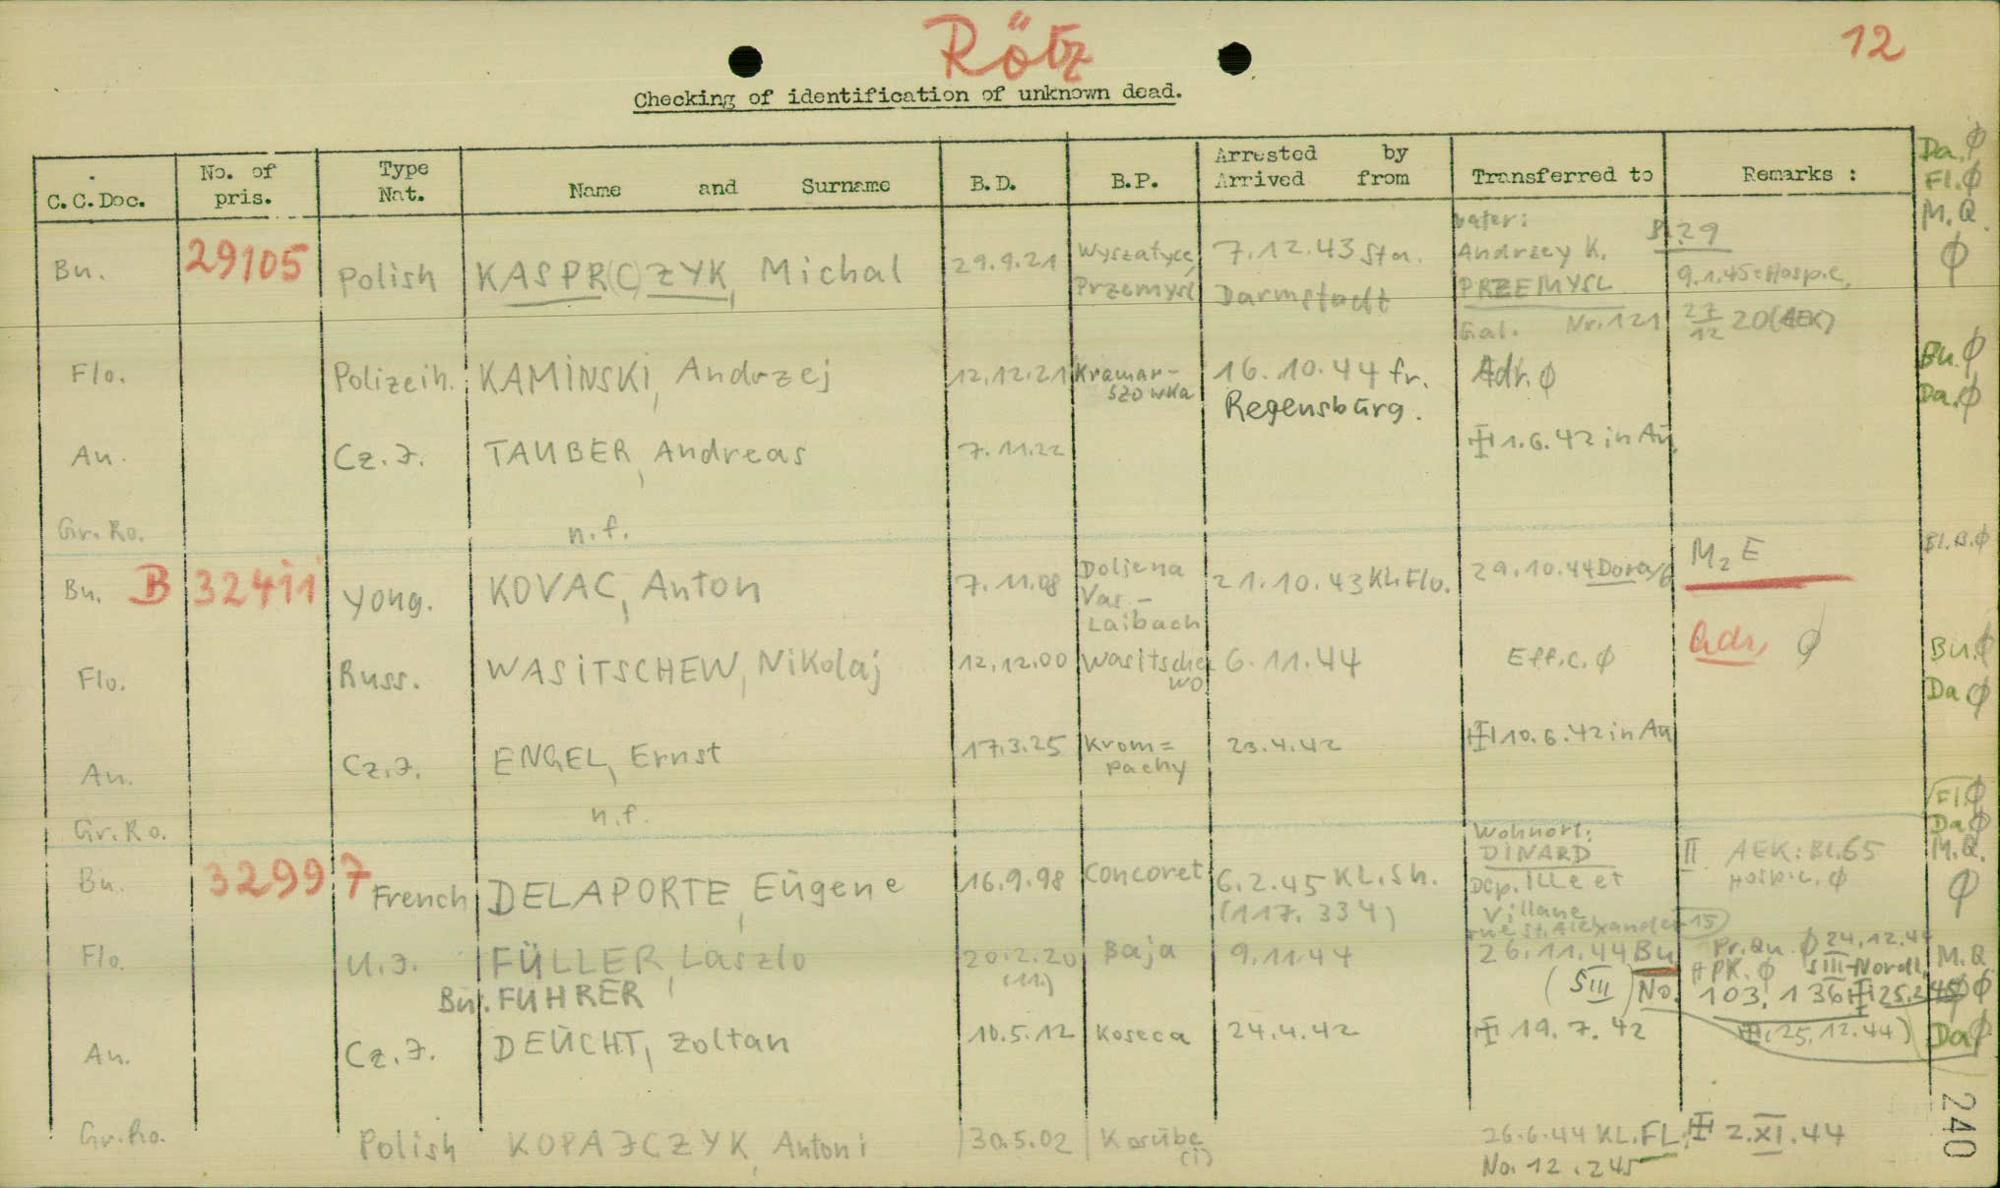 Rötz
12
Checking of identification of unknown dead.
C.C.Doc. No. of pris. Type Nat. Name and Surname B.D. B.P. Arrested by Arrived from Transferred to Remarks :
Da. ∅
Fl. ∅
M.Q.
∅
Bn. 29105 Polish KASPR(C)ZYK, Michal 29.9.21 Wyszatyce, Przemysl 7.12.43 Darmstadt
Andrzey K.
PRZEMYSL
Gal. Nr. 121
29
9.1.45: Hospic,
27/12 20 (AEK)
Bu. ∅
Da. ∅
Flo. Polizeih. KAMINSKI, Andrzej 12.12.21 Kramar-szowka 16.10.44 fr. Regensburg. Adr. ∅
Au. Cz.J. TAUBER, Andreas 7.11.22 1.6.42 in Au.
Gr.Ro. n.f.
Bu. B 32411 Yong. KOVAC, Anton 7.11.08 Doljena Vas - Laibach 21.10.43 Kl. Flo. 29.10.44 Dora M2 E
Adr, ∅
Flo. Russ. WASITSCHEW, Nikolaj 12.12.00 Wasitsche wo 6.11.44 Eff.c. ∅
Bu. ∅
Da ∅
Au. Cz.J. ENGEL, Ernst 17.3.25 Krom=pachy 23.4.42 10.6.42 in Au
Gr.Ro. n.f.
Fl. ∅
Da ∅
M.Q.
∅
Bu. 32997 French DELAPORTE, Eugene 16.9.98 Concoret 6.2.45 KL.Sh. (117.334)
Wohnort:
DINARD
Dep. ILLe et
Villane
rue St. Alexander 15
II AEK: Bl.65
Hospic. ∅
Flo. U.J. FÜLLER, Laszlo 20.2.20 (11.) Baja 9.11.44 26.11.44 Bu
Bu. FUHRER
(SIII) No. 103.136
Pr.Qu. ∅ 24.12.44
HPK. ∅ SIII-Nordl.
M.Q.
(25.12.44)
Au. Cz.J. DEUCHT, Zoltan 10.5.12 Koseca 24.4.42 19.7.42
Da ∅
Gr.Ro. Polish KOPAJCZYK, Antoni 30.5.02 26.6.44 KL.FL. No. 12.245 2.XI.44
240